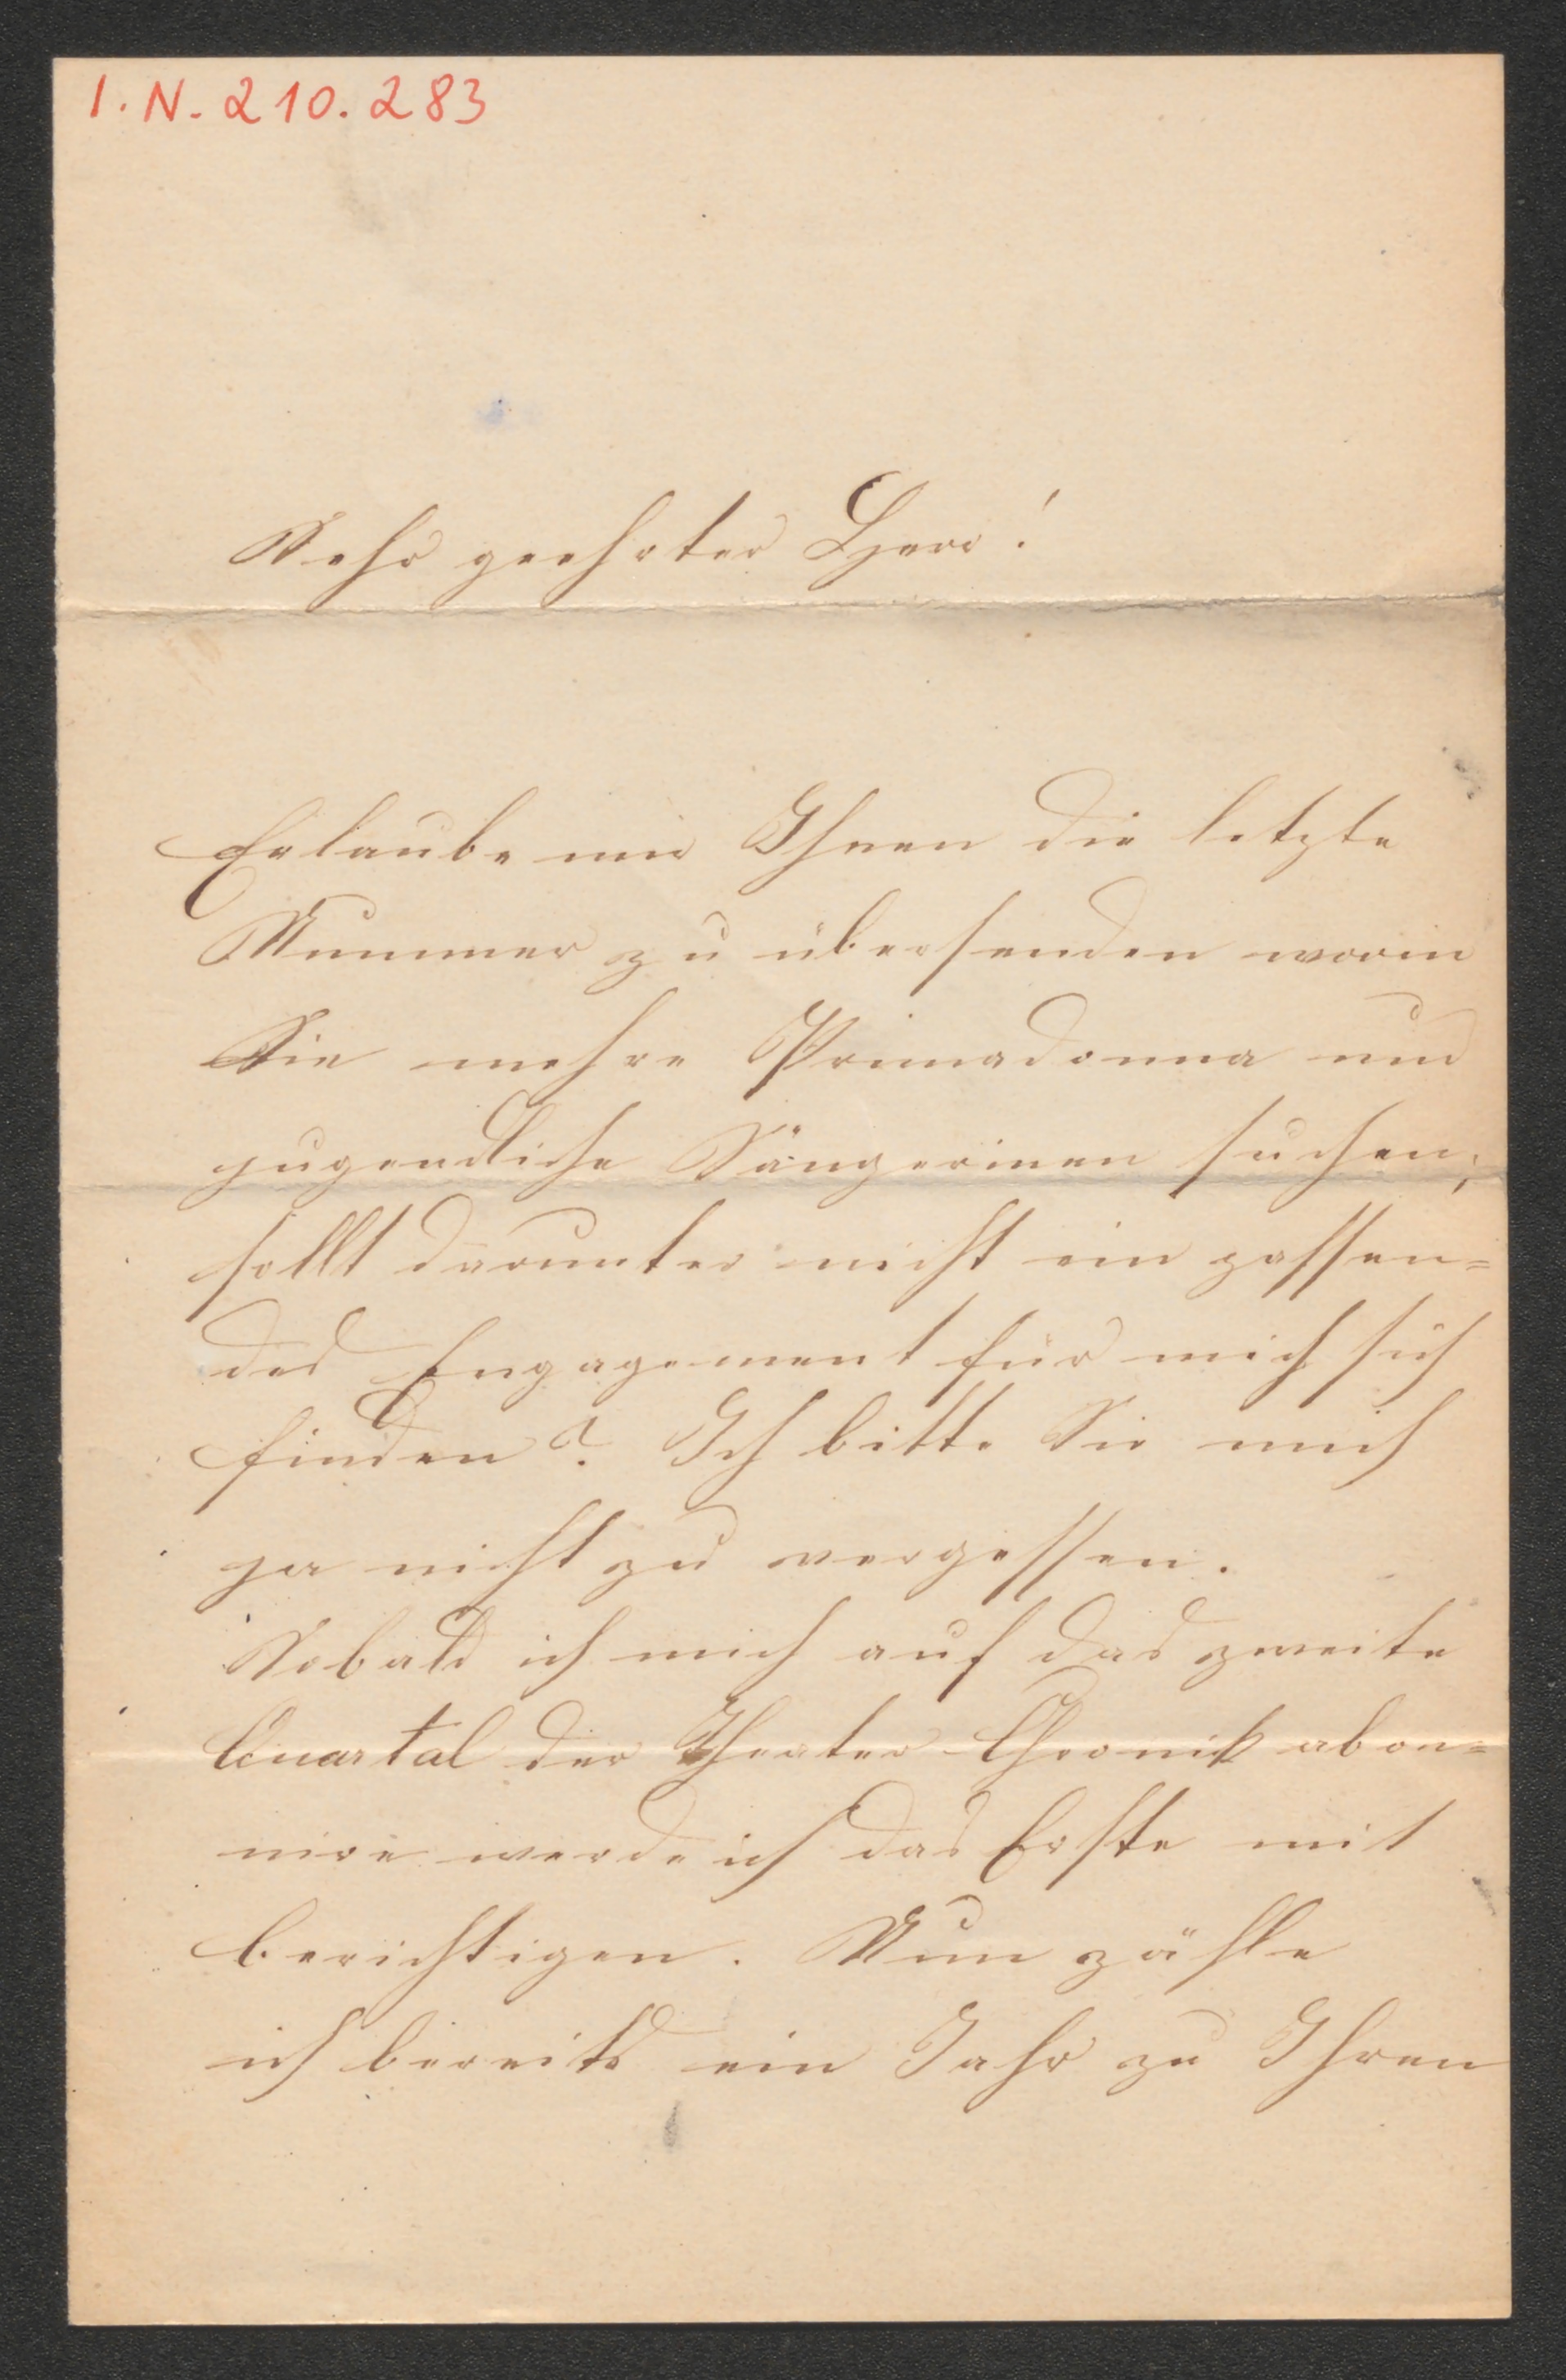 I. N. 210.283
Sehr geehrter Herr!
Erlaube mir Ihnen die letzte
Nummer zu übersenden worin
Sie mehre Primadonna und
jugendliche Sängerinen suchen;
sollt darunter nicht ein passen=
des Engagement für mich sich
finden? Ich bitte Sie mich
ja nicht zu vergessen.
Sobald ich mich auf das zweite
Quartal der Theater Chronik abon=
nire werde ich das Erste mit
berichtigen. Nun zähle
ich bereits ein Jahr zu Ihren